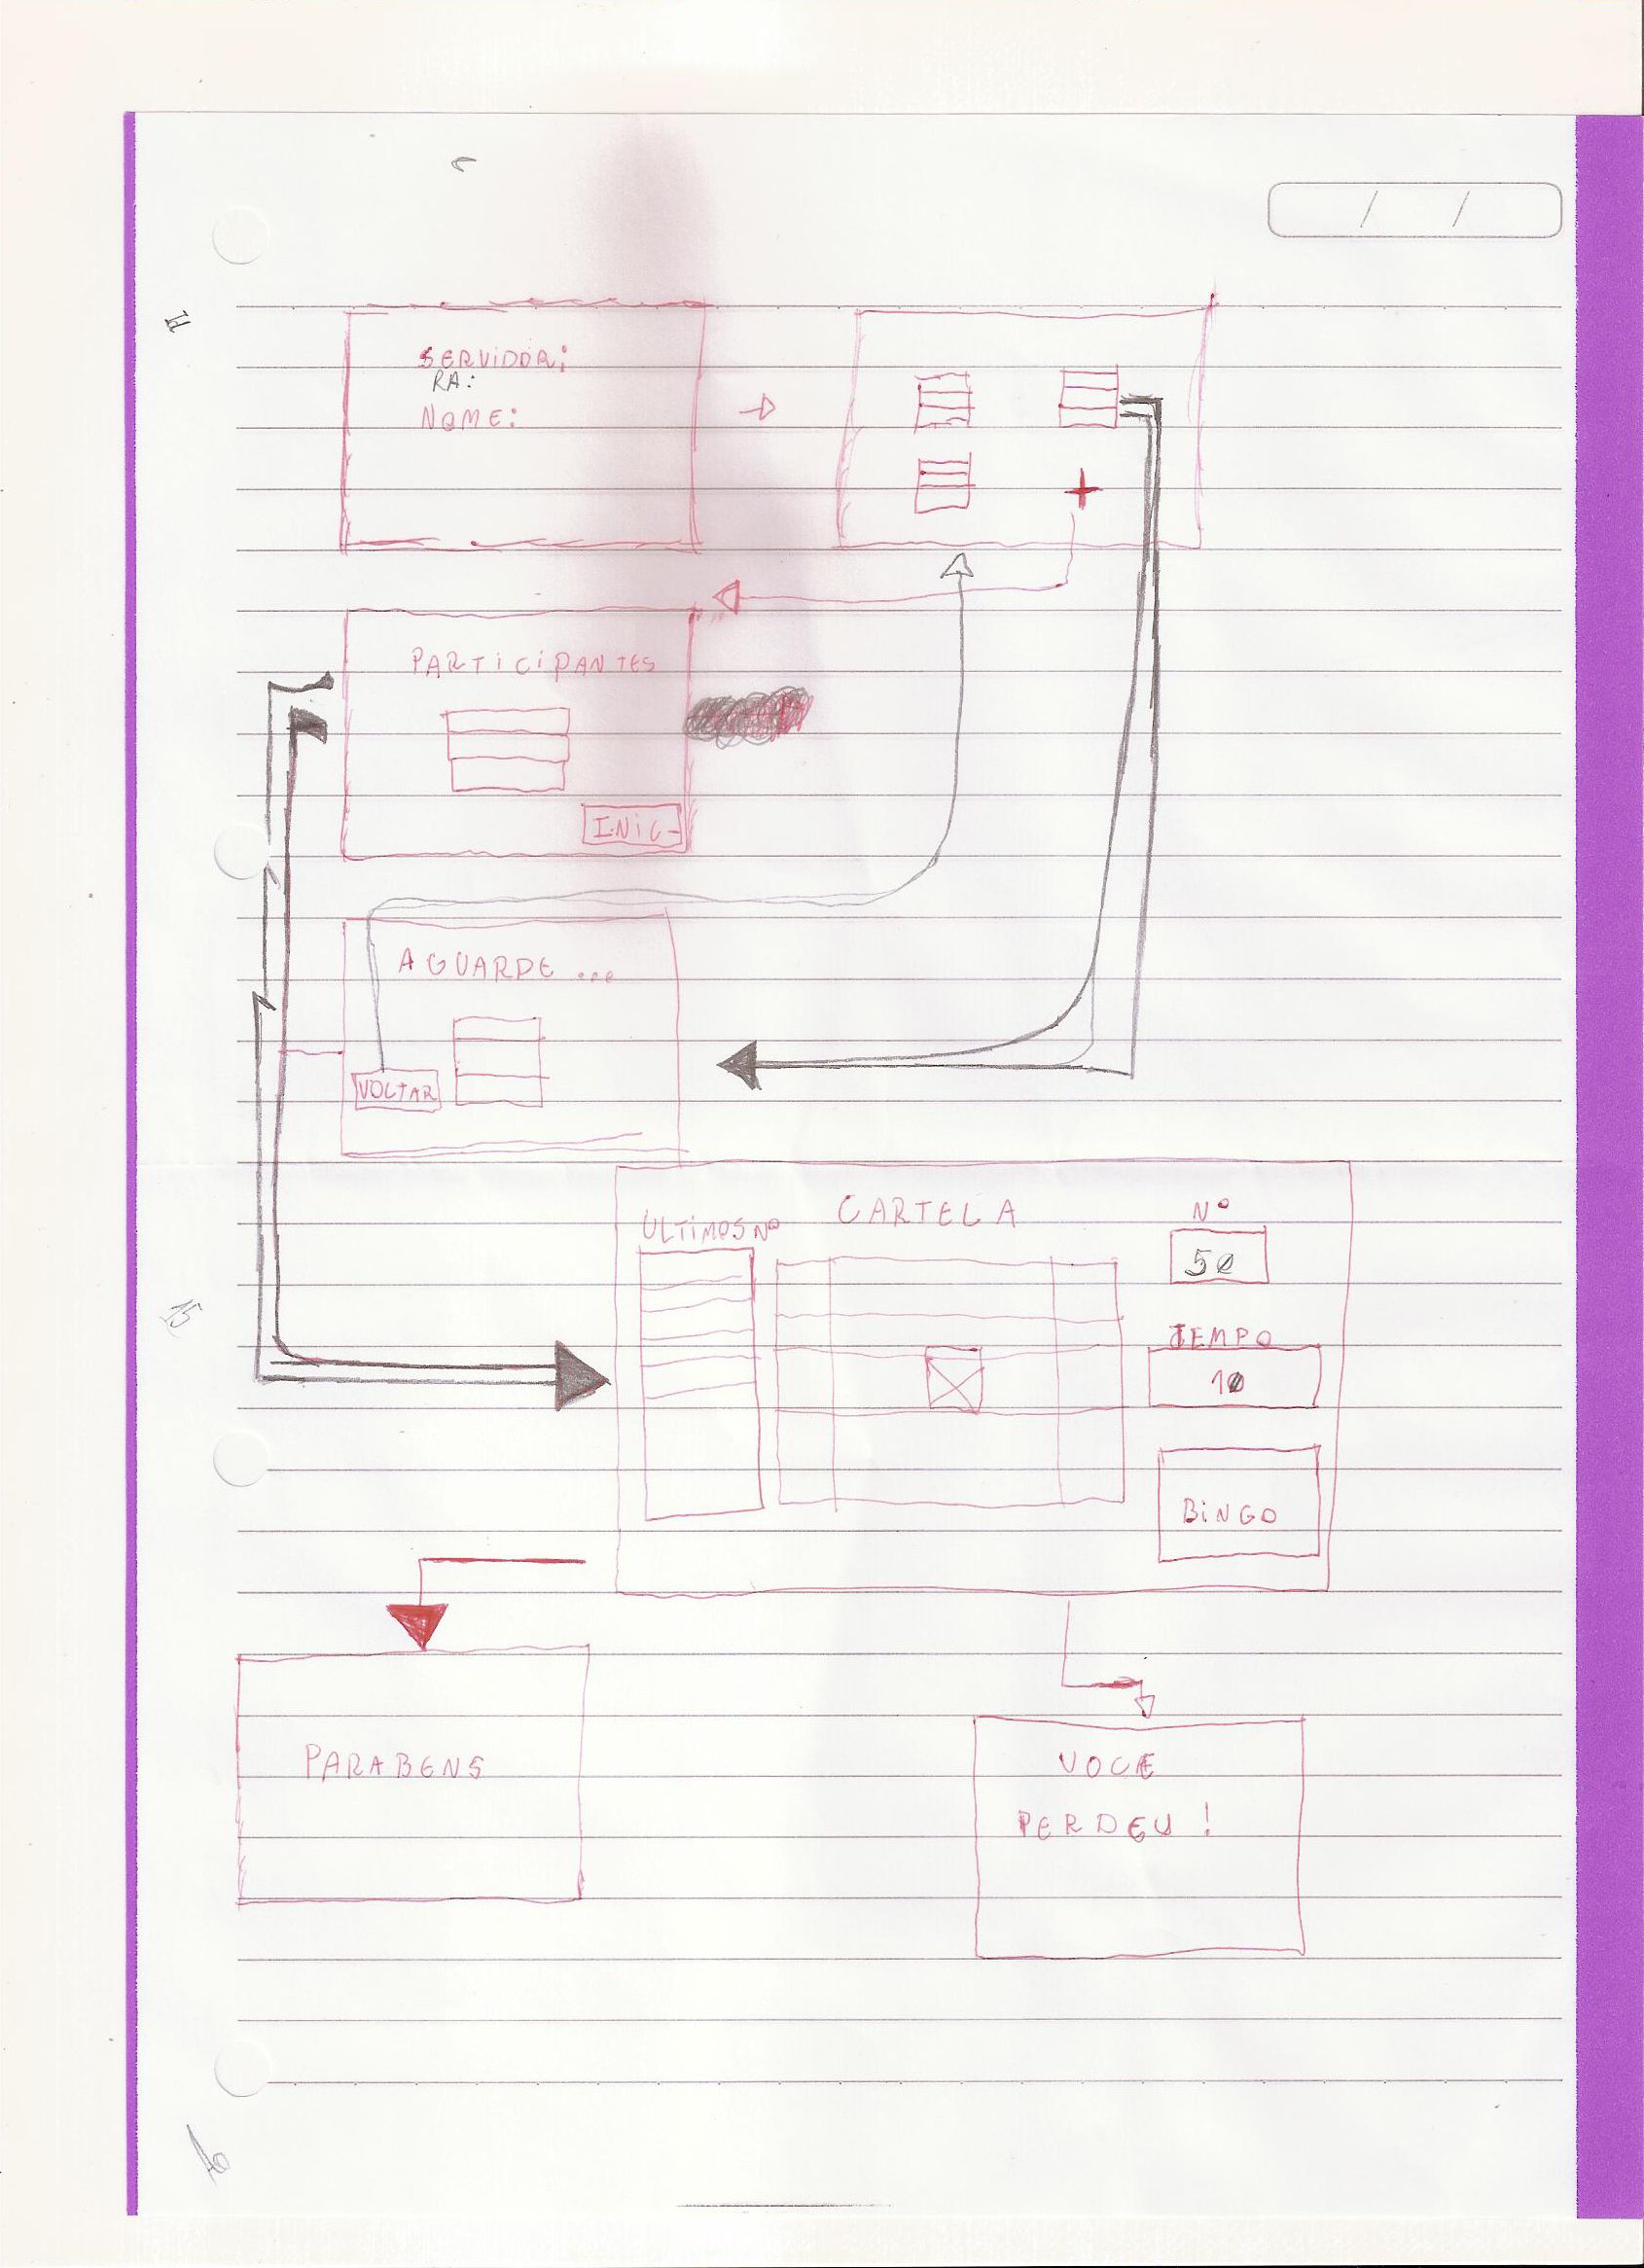 SERVIDOR:
RA:
NOME:
+
PARTICIPANTES
INIC-
AGUARDE ...
VOLTAR
ULTIMOS Nº
CARTELA
Nº
50
TEMPO
10
BINGO
PARABENS
VOCE
PERDEU !